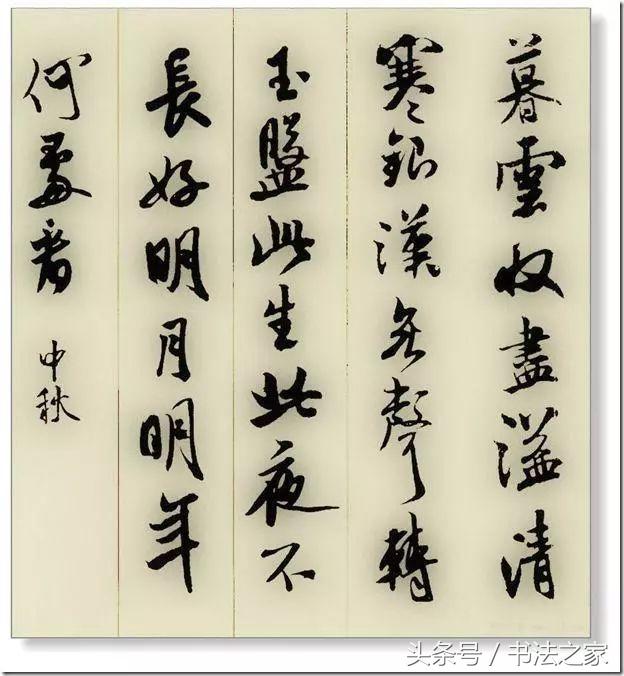 暮雲收盡溢清
寒銀漢無聲轉
玉盤此生此夜不
長好明月明年
何處看
中秋
头条号 / 书法之家